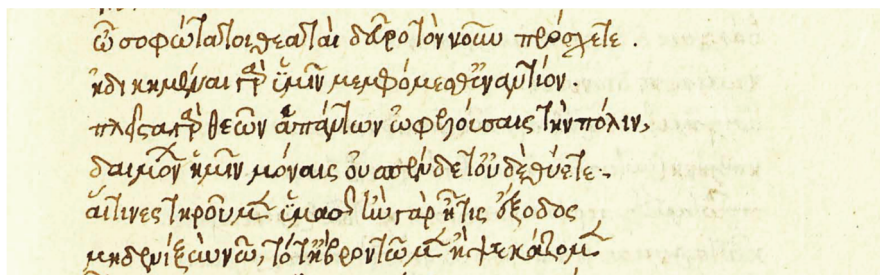 ὦ σοφώτατοι θεαταὶ δεῦρο τὸν νοῦν πρόσχετε.
ἠδικημέναι γὰρ ὑμῖν μεμφόμεσθ' ἐναντίον.
πλεῖστα γὰρ θεῶν ἁπάντων ὠφελούσαις τὴν πόλιν,
δαιμόνων ἡμῖν μόναις οὐ σπένδετ' οὐδὲ θύετε.
αἵτινες τηροῦμεν ὑμᾶς ἢν γὰρ ᾖ τις ἔξοδος
μηδενὶ ξὺν νῶ, τότ' ἢ βροντῶμεν ἢ ψεκάζομεν